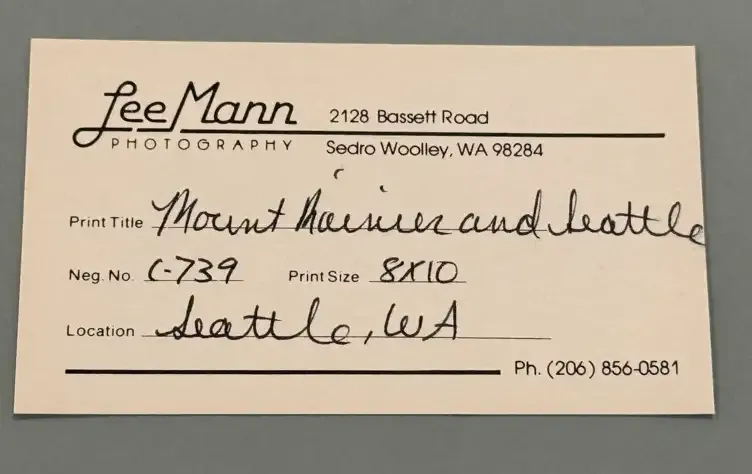 Lee Mann 2128 Bassett Road
PHOTOGRAPHY Sedro Woolley, WA 98284
Print Title Mount Rainier and Seattle
Neg. No. C-739 Print Size 8X10
Location Seattle, WA
Ph. (206) 856-0581